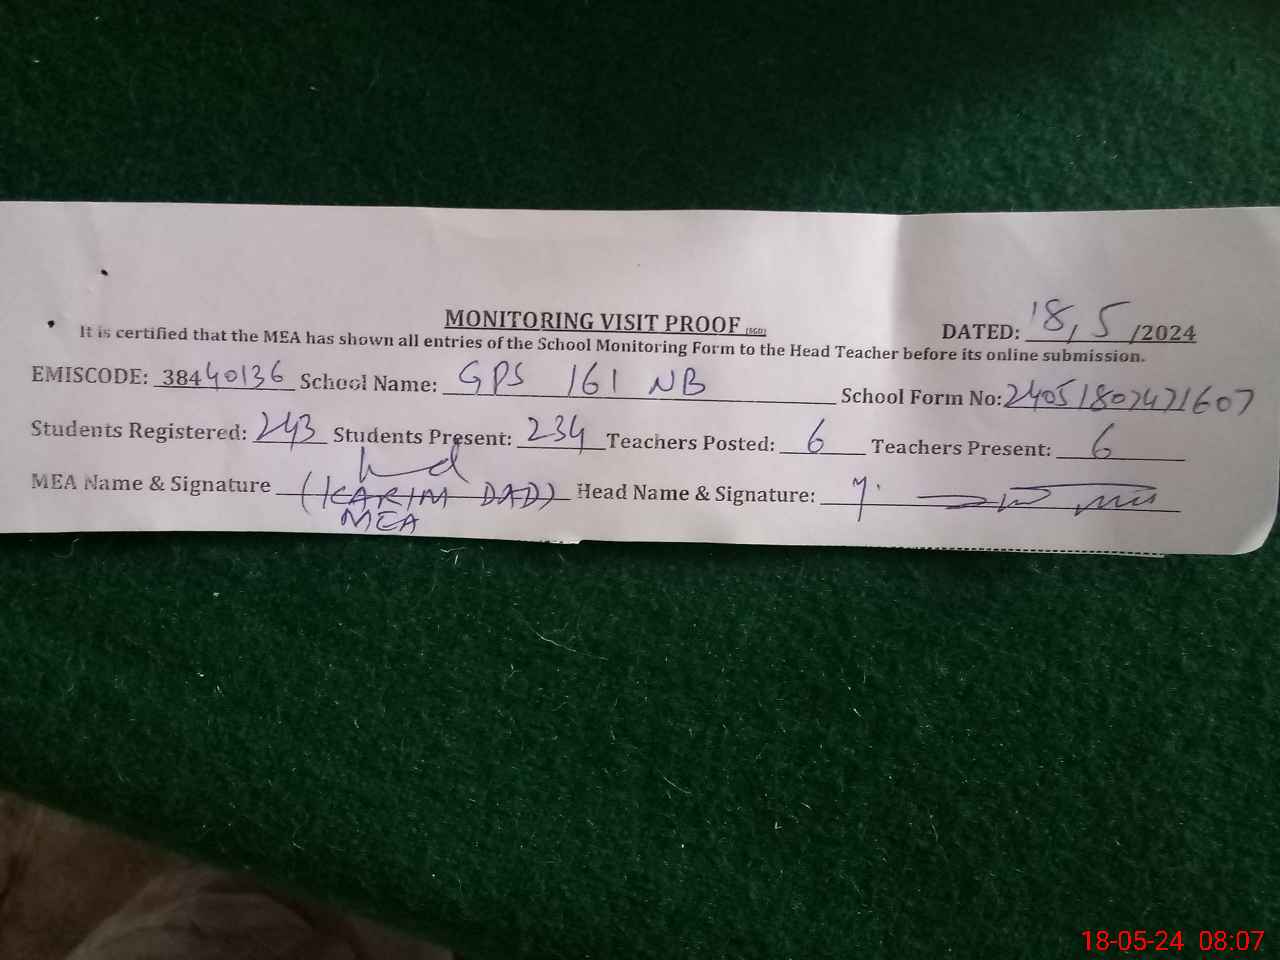 MONITORING VISIT PROOF (SGD)
DATED: 18, 5 /2024
It is certified that the MEA has shown all entries of the School Monitoring Form to the Head Teacher before its online submission.
EMISCODE: 38440136 School Name: GPS 161 NB School Form No: 24051807471607
Students Registered: 243 Students Present: 234 Teachers Posted: 6 Teachers Present: 6
MEA Name & Signature (KARIM DAD) Head Name & Signature:
MEA
18-05-24 08:07